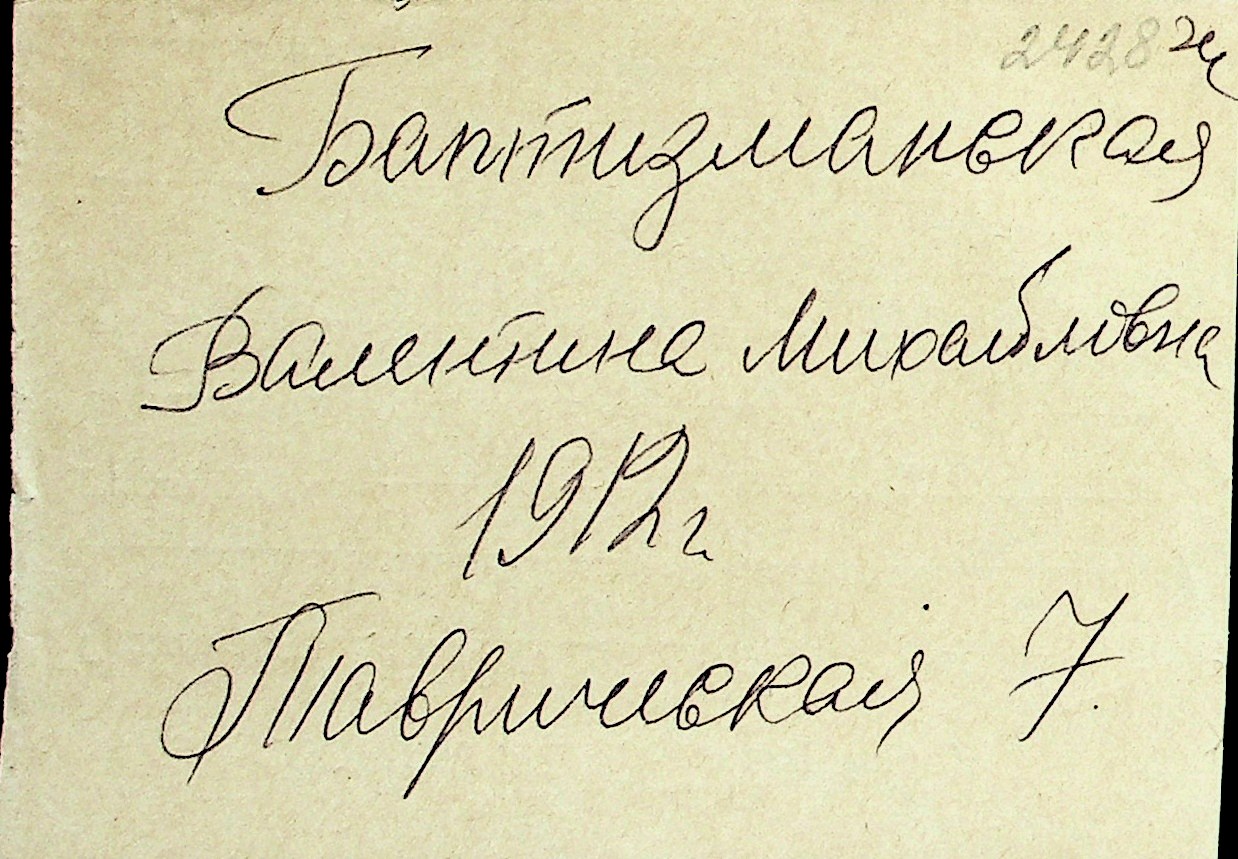 2428
Баптизманская
Валентина Михайловна
1912 г
Таврическая 7.